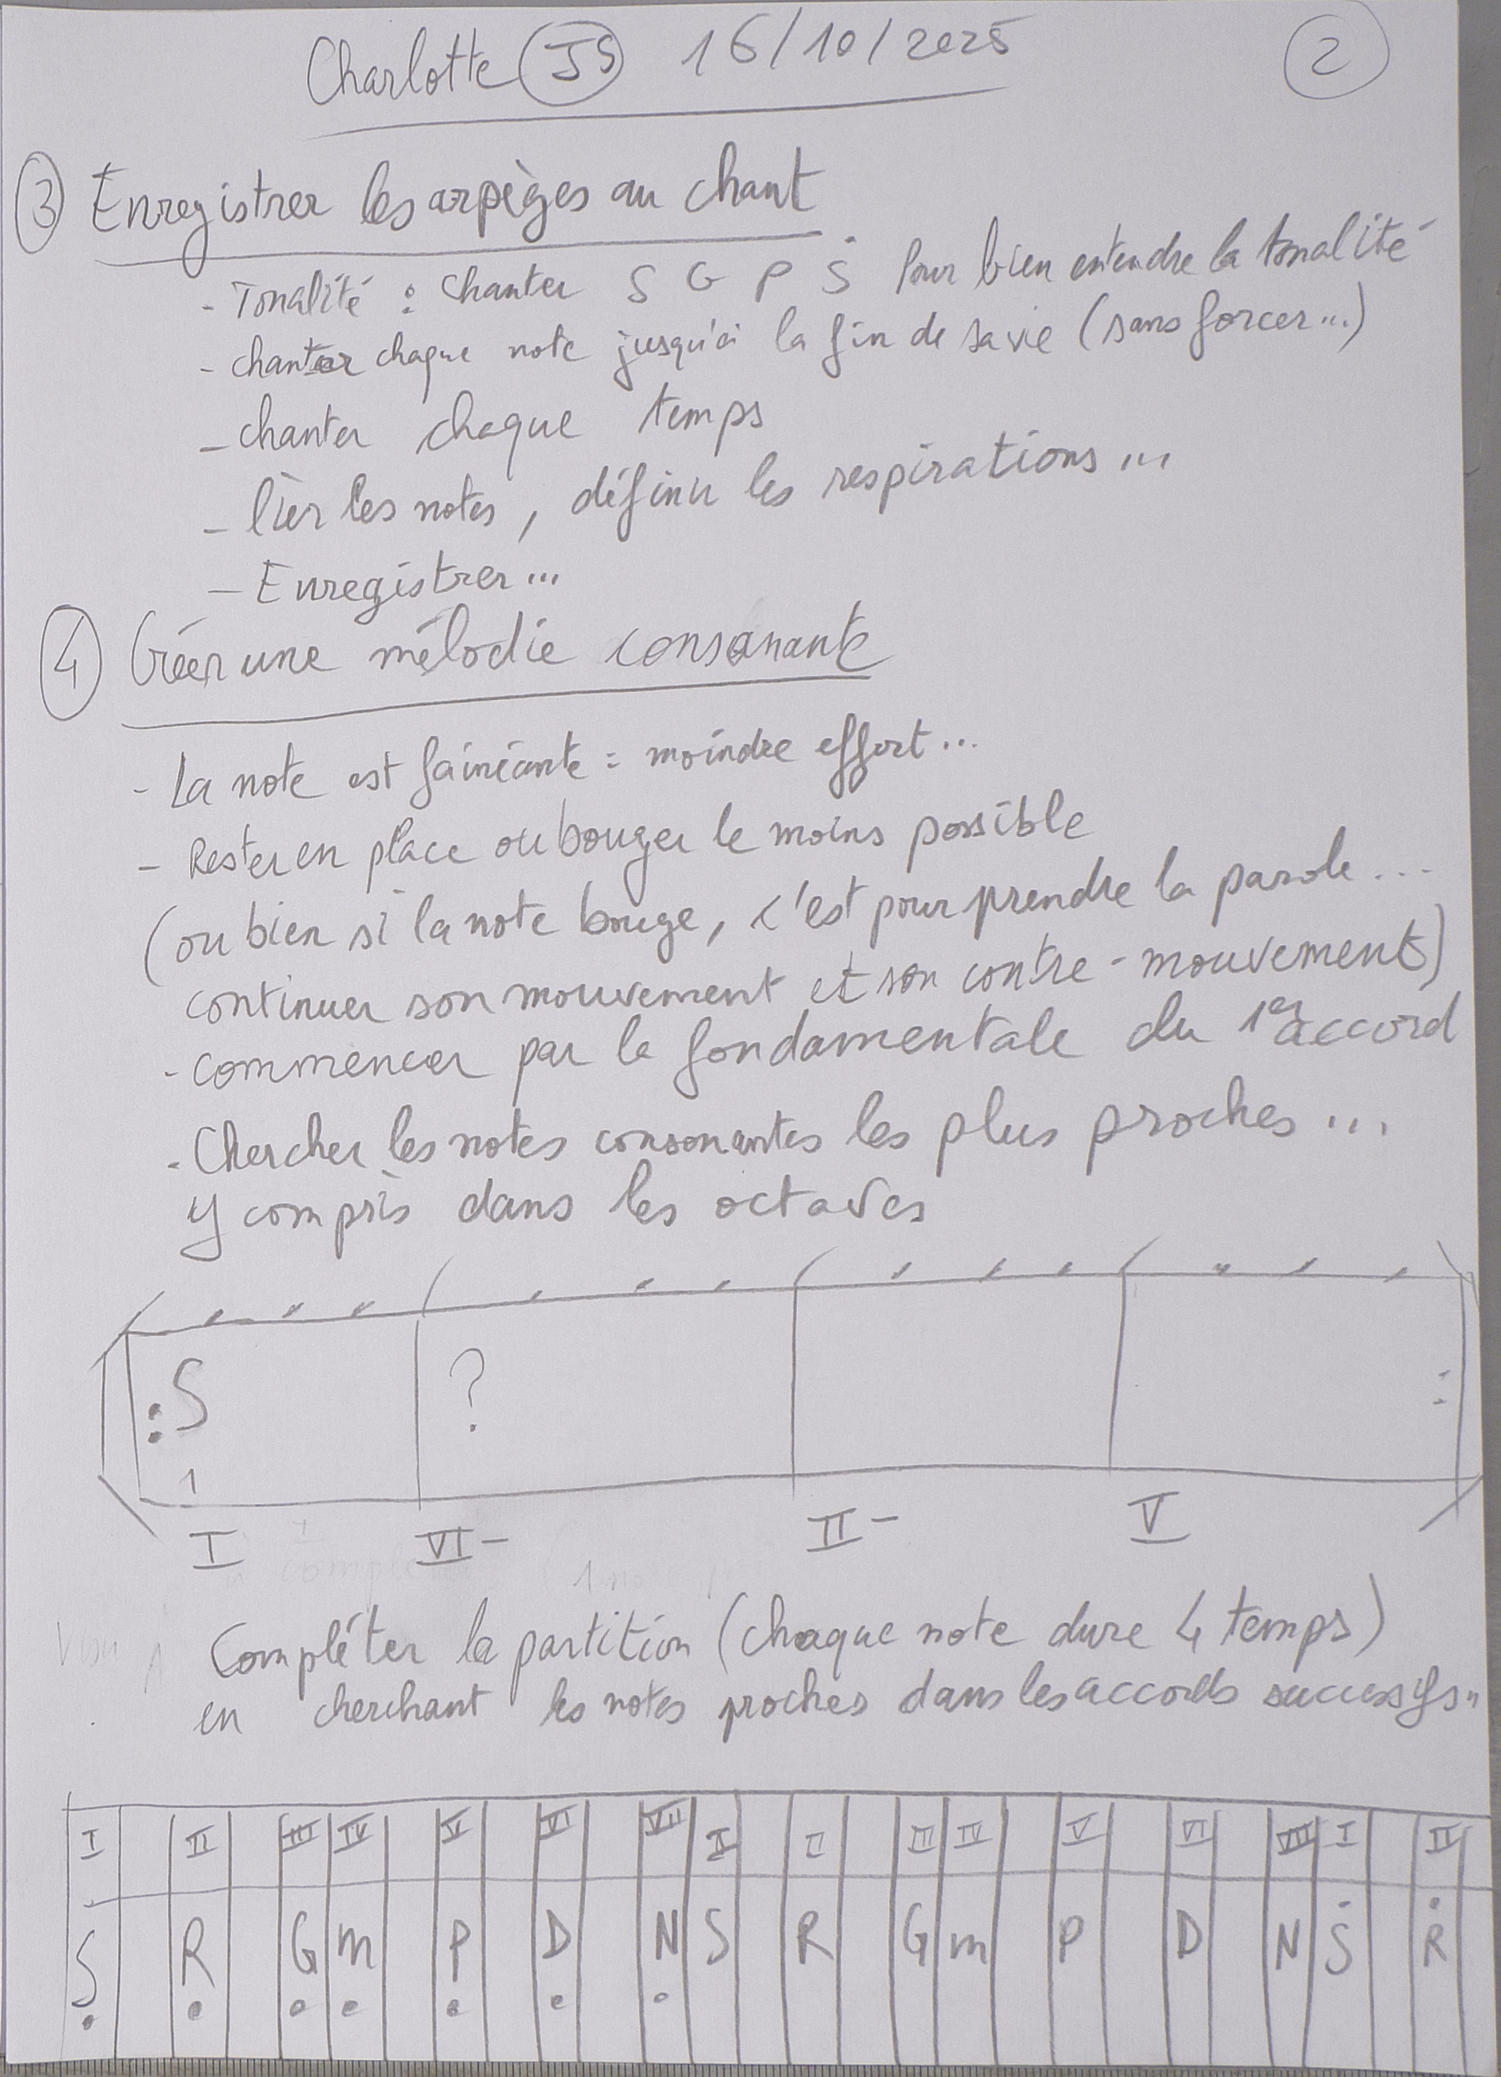 Charlotte JS 16/10/2025 2
3 Enregistrer les arpèges au chant
- Tonalité : chanter S G P Ṡ Pour bien entendre la tonalité
- chanter chaque note jusqu'à la fin de sa vie (sans forcer...)
- chanter chaque temps
- lier les notes, définir les respirations...
- Enregistrer...
4 Créer une mélodie consonante
- La note est fainéante = moindre effort...
- Rester en place ou bouger le moins possible
(ou bien si la note bouge, c'est pour prendre la parole...
continuer son mouvement et son contre-mouvement)
- commencer par la fondamentale du 1er accord
- Chercher les notes consonantes les plus proches...
y compris dans les octaves
: S ? :
1
I VI- II- V
Compléter la partition (chaque note dure 4 temps)
en cherchant les notes proches dans les accords successifs..
I II III IV V VI VII I II III IV V VI VII I II
Ṣ Ṛ G̣ ṃ P̣ Ḍ Ṇ S R G m P D N Ṡ Ṙ